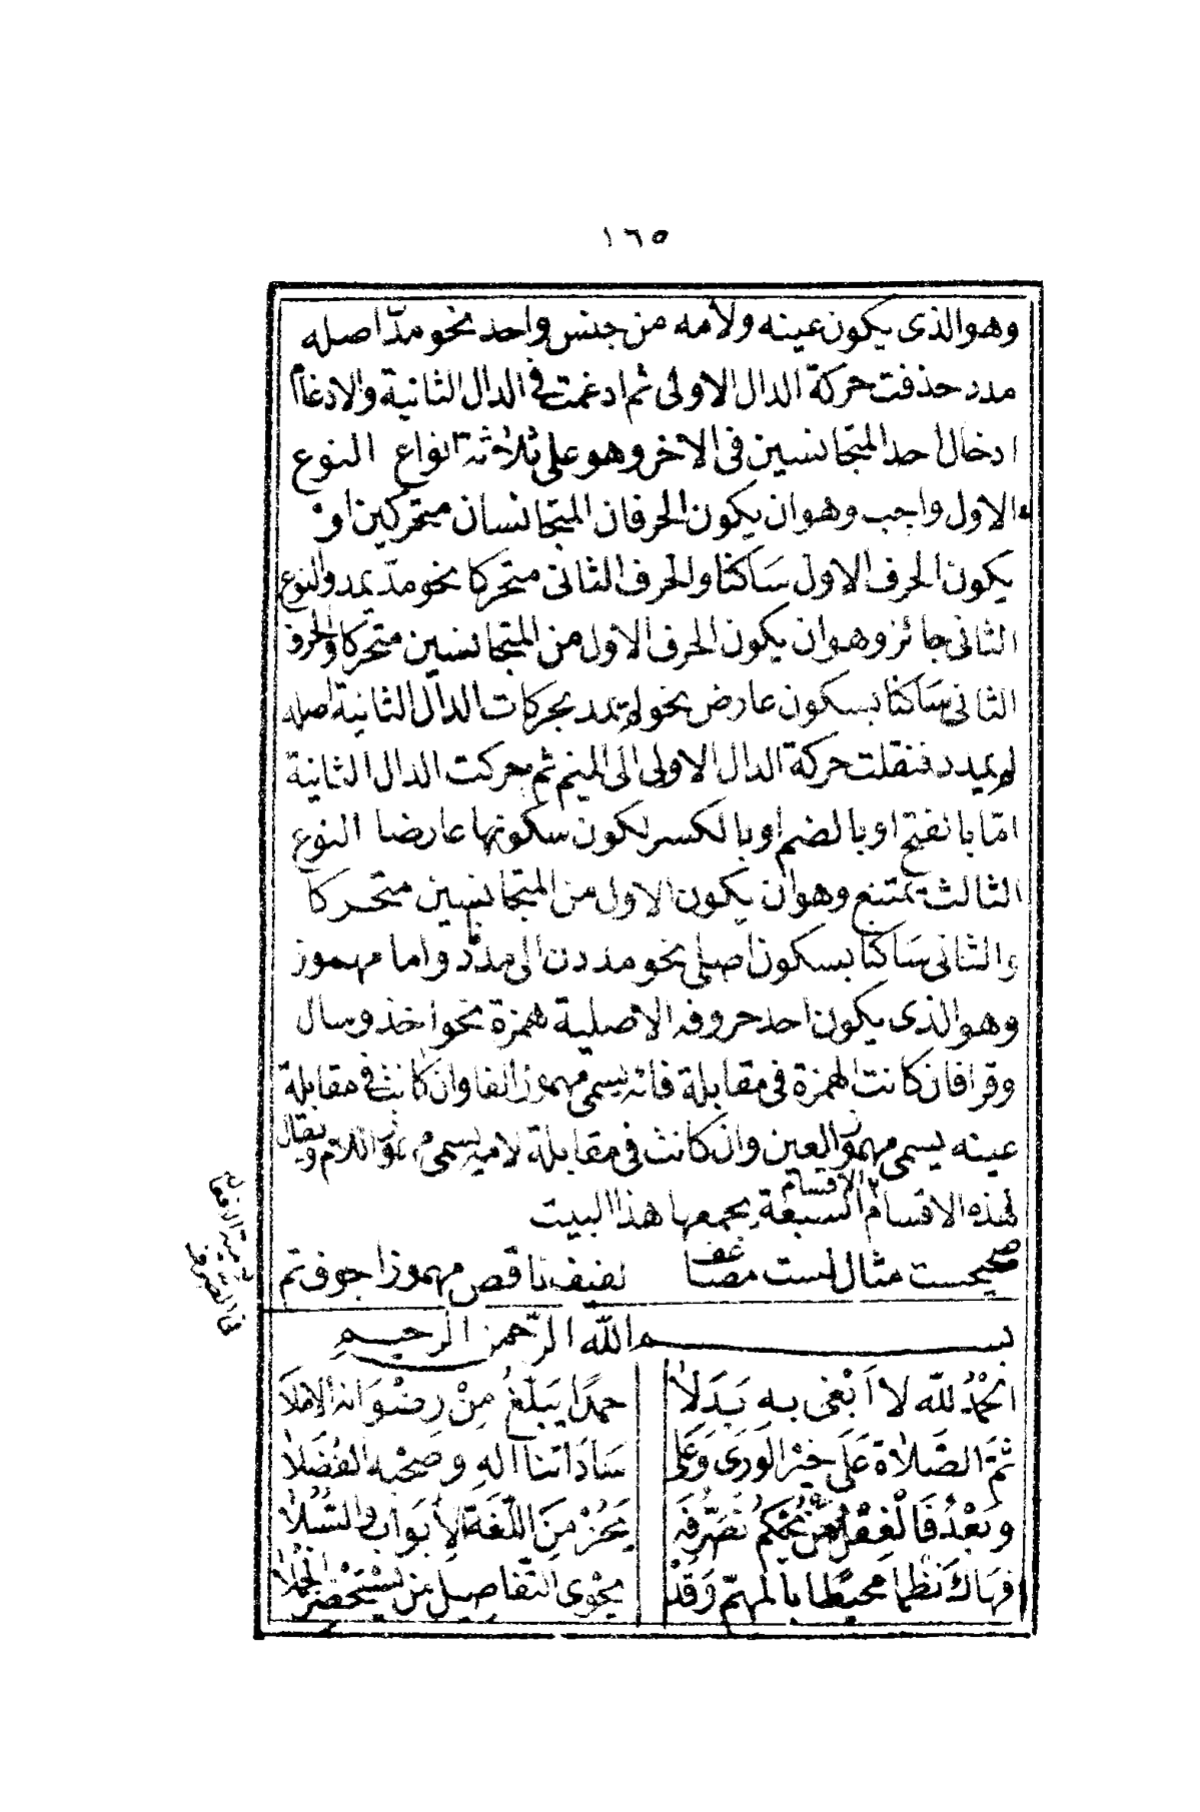 ١٦٥
وهو الذى يكون عينه ولامه من جنس واحد نحو مدّ اصله
مدد حذفت حركة الدال الاولى ثم ادغمت فى الدال الثانية والادغام
ادخال احد المتجانسين فى الاخر وهو على ثلاثة انواع النوع
الاول واجب وهو ان يكون الحرفان المتجانسان متحركين او
يكون الحرف الاول ساكنا والحرف الثانى متحركا نحو مدّ يمد والنوع
الثانى جائز وهو ان يكون الحرف الاول من المتجانسين متحركا والحرف
الثانى ساكنا بسكون عارض نحو لم يمد بحركات الدال الثانية اصله
لم يمدد فنقلت حركة الدال الاولى الى الميم ثم حركت الدال الثانية
امّا بالفتح او بالضم او بالكسر لكون سكونها عارضا النوع
الثالث ممتنع وهو ان يكون الاول من المتجانسين متحركا
والثانى ساكنا بسكون اصلى نحو مددن الى مددنا واما مهموز
وهو الذى يكون احد حروفه الاصلية همزة نحو اخذ وسال
وقرا فان كانت الهمزة فى مقابلة فائه يسمى مهموز الفا وان كانت فى مقابلة
عينه يسمى مهموز العين وان كانت فى مقابلة لامه يسمى مهموز اللام ويقال
لهذه الاقسام الاقسام السبعة يجمعها هذا البيت
صحيحست مثال است مضاعف لفيف ناقص مهموز اجوف تم
لامية الافعال
فى الصرف
بسم الله الرّحمن الرحيم
الحَمْدُ للّه لا اَبْغى بِهِ بَدَلاً حمدًا يَبْلُغُ مِنْ رِضْوَانه الاملَا
ثمّ الصَّلاة عَلَى خيْر الوَرَى وَعَلى سَادَاتنا الهِ وصَحْبه الفُضَلا
وَبَعْدُ فَالْفِعْلُ مَنْ يُحْكِمْ تَصَرّفَه يَحُزْ مِنَ اللّغَة الأبوَابَ والسُّبُلا
فهَاكَ نَظْمًا مُحيْطًا بالمهمّ وَقَدْ يحْوِى التّفاصِيل مَن يَسْتَحْضِر الجُمَلا